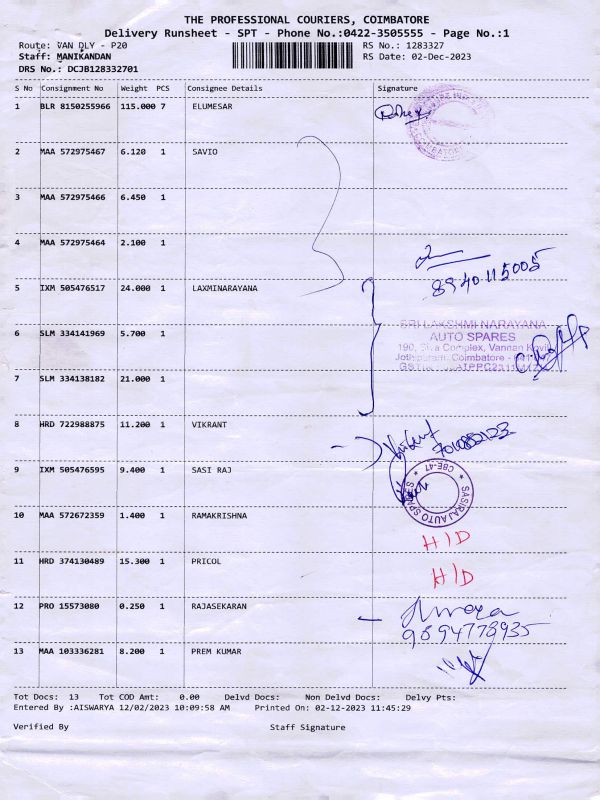 THE PROFESSIONAL COURIERS, COIMBATORE
Delivery Runsheet - SPT - Phone No.:0422-3505555 - Page No.:1
Route: VAN DLY - P20 RS No.: 1283327
Staff: MANIKANDAN RS Date: 02-Dec-2023
DRS No.: DCJB128332701
S No Consignment No Weight PCS Consignee Details Signature
1 BLR 8150255966 115.000 7 ELUMESAR
2 MAA 572975467 6.120 1 SAVIO
3 MAA 572975466 6.450 1
4 MAA 572975464 2.100 1
8940115005
5 IXM 505476517 24.000 1 LAXMINARAYANA
SRI LAKSHMI NARAYANA
6 SLM 334141969 5.700 1 AUTO SPARES
190, Siva Complex, Vannan Kovil
Jothipuram, Coimbatore
7 SLM 334138182 21.000 1
8 HRD 722988875 11.200 1 VIKRANT
9 IXM 505476595 9.400 1 SASI RAJ
SASIRAJ AUTO SPARES * CBE-47 *
10 MAA 572672359 1.400 1 RAMAKRISHNA
H/D
11 HRD 374130489 15.300 1 PRICOL
H/D
12 PRO 15573080 0.250 1 RAJASEKARAN
9894778935
13 MAA 103336281 8.200 1 PREM KUMAR
Tot Docs: 13 Tot COD Amt: 0.00 Delvd Docs: Non Delvd Docs: Delvy Pts:
Entered By :AISWARYA 12/02/2023 10:09:58 AM Printed On: 02-12-2023 11:45:29
Verified By Staff Signature